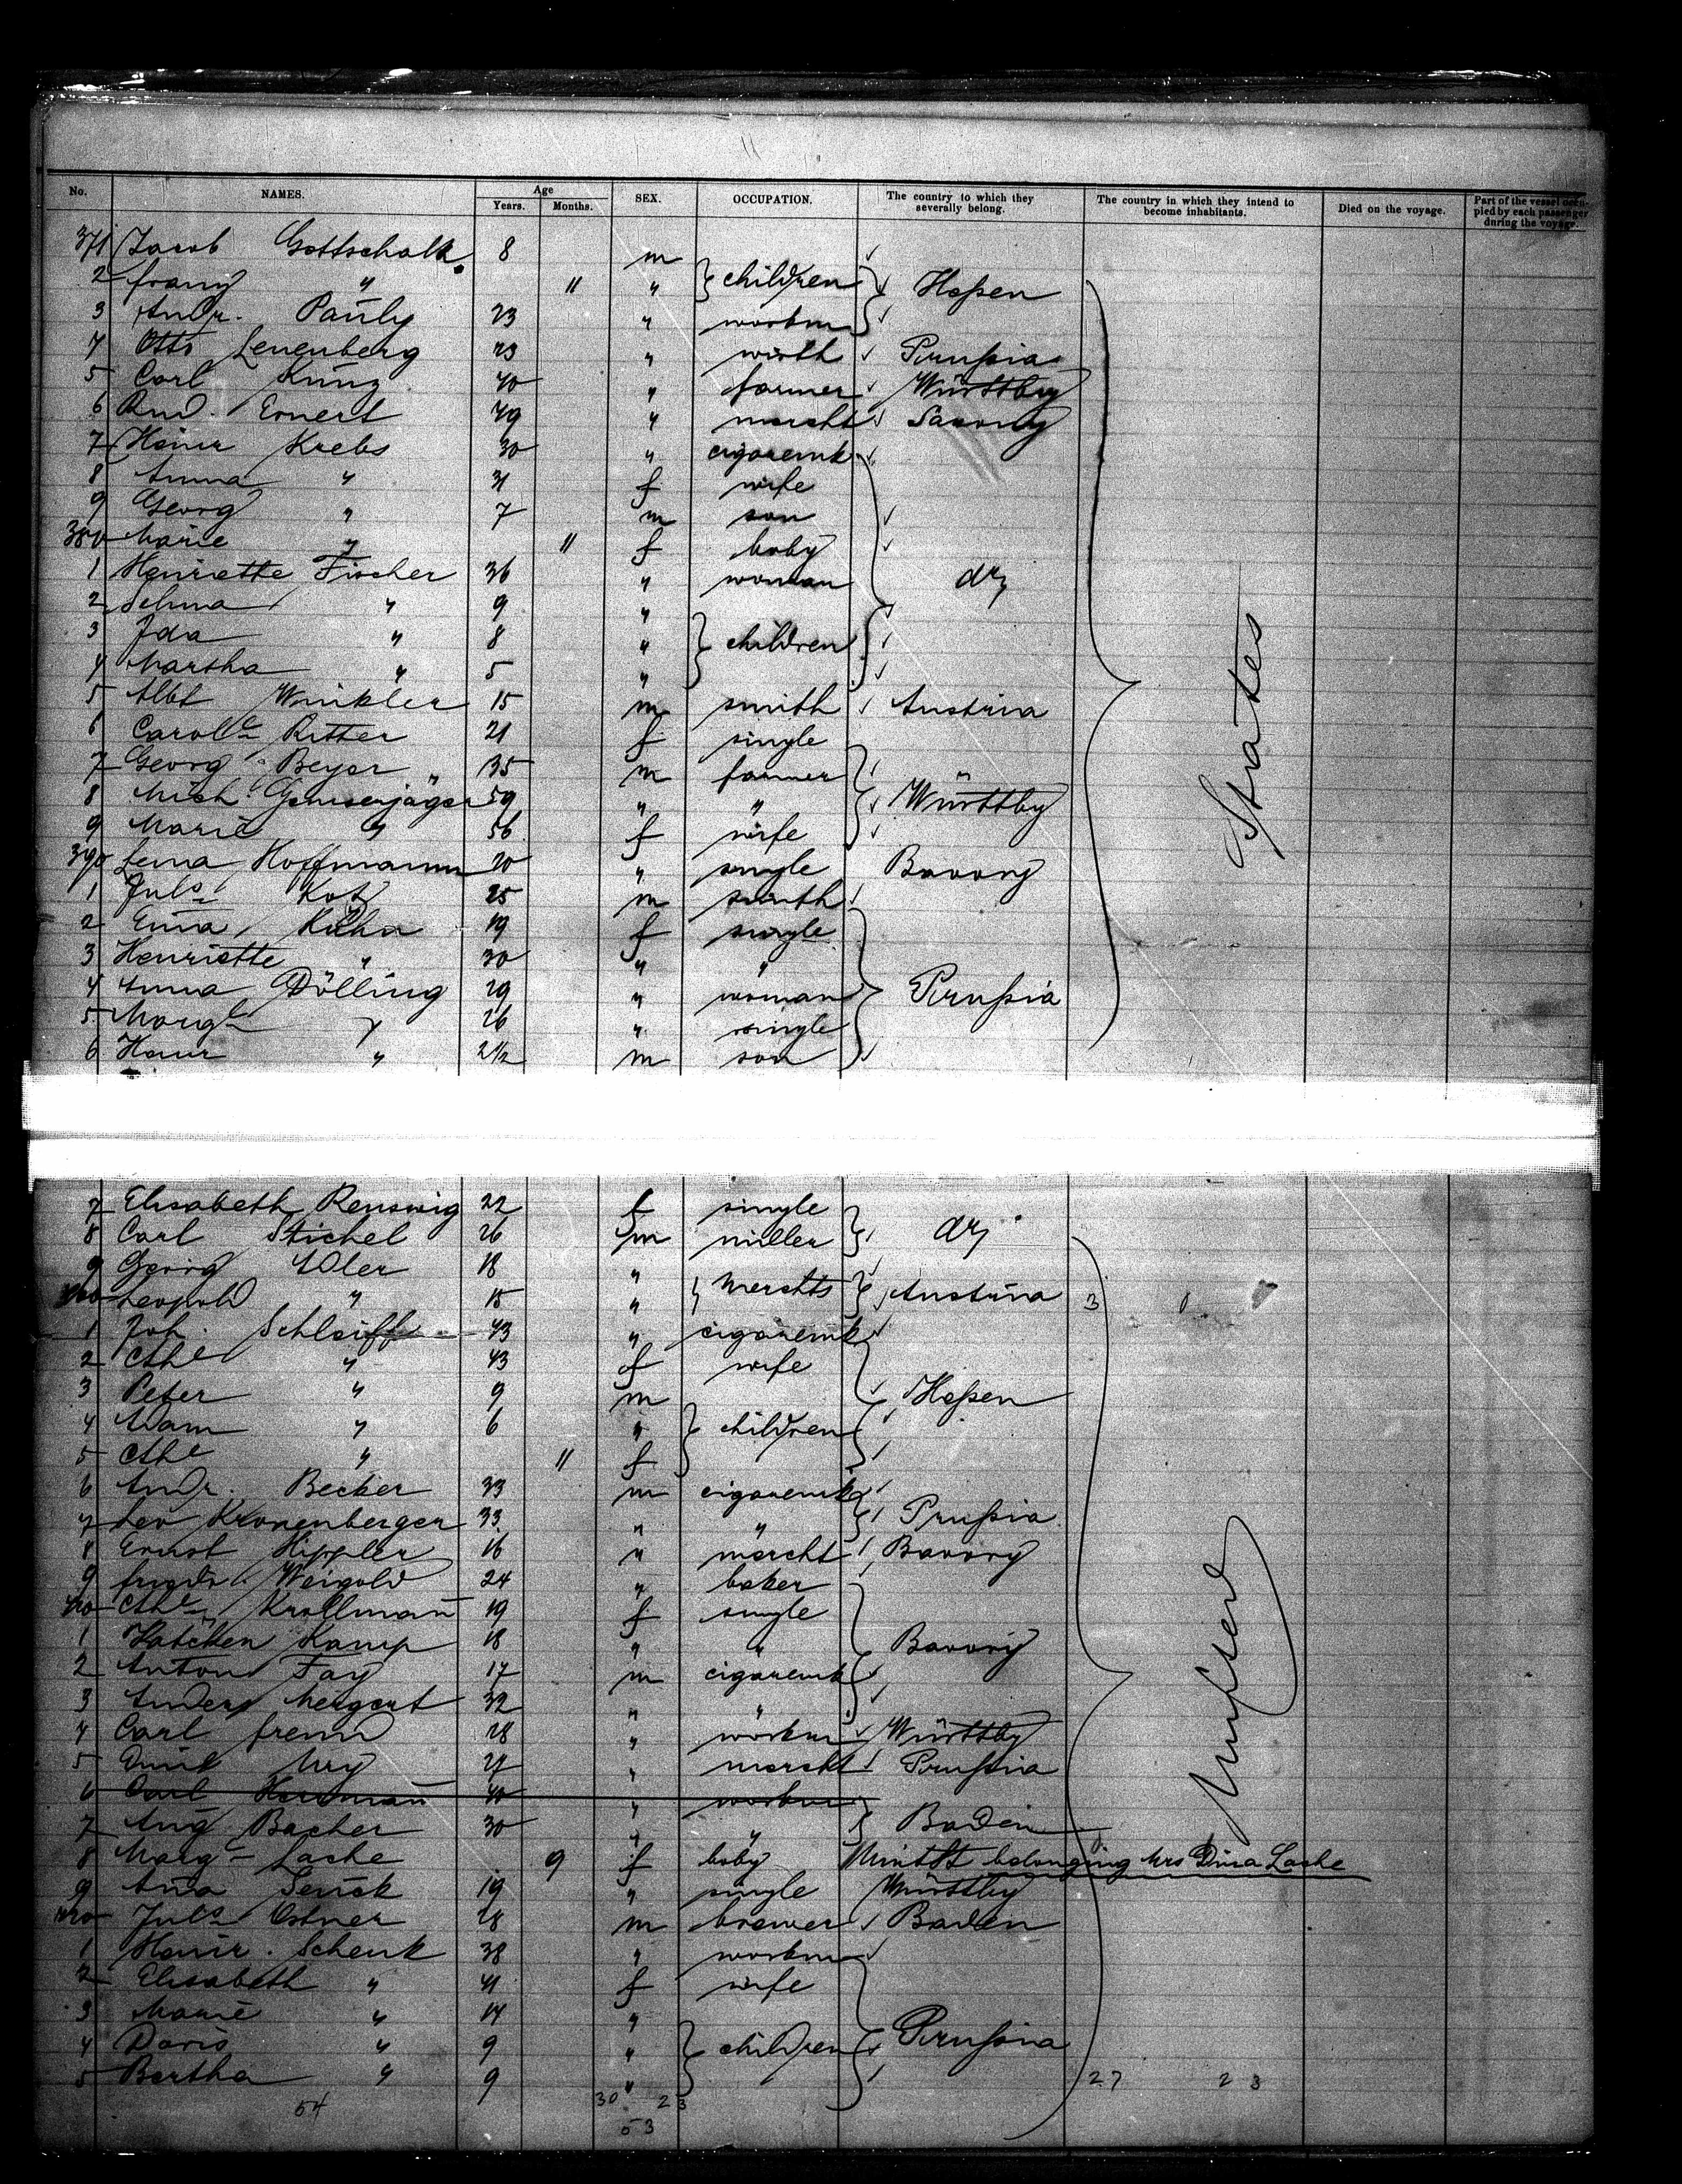 11
No. NAMES. Age Years. Months. SEX. OCCUPATION. The country to which they severally belong. The country in which they intend to become inhabitants. Died on the voyage. Part of the vessel occupied by each passenger during the voyage.
371 Jacob Gottschalk 8 m
2 franz " 11 " children Heßen
3 Andr. Pauly 23 " workm
4 Otto Lenenberg 23 " wirth Prußia
5 Carl Kunz 40 " farmer Württbg
6 Rud. Ernert 49 " marcht Saxony
7 Heinr Krebs 30 " cigaremk
8 Anna " 31 f wife
9 Georg " 7 m son
380 Marie " 11 f baby
1 Henriette Fischer 36 " woman do
2 Selma " 9 "
3 Ida " 8 " children
4 Martha " 5 "
5 Albt Winkler 15 m smith Austria
6 Carole Ritter 21 f single
7 Georg Beyer 35 m farmer
8 Mich. Gemsenjäger 59 " " Württbg
9 Marie " 56 f wife
390 Lena Hoffmann 20 " single Bavory
1 Juls Kotz 25 m smith
2 Em̄a Kühn 19 f single
3 Henriette " 30 " "
4 Anna Dölling 29 " woman Prußia
5 Marg " 26 " single
6 Heinr " 2 1/2 m son
States
7 Elisabeth Renswig 22 f single
8 Carl Stichel 26 m miller do
9 Georg Adler 18 "
400 Leopold " 15 " Merchts Austria 3
1 Joh. Schleiff 43 " cigaremk
2 Cthe " 43 f wife
3 Peter " 9 m Heßen
4 Adam " 6 " children
5 Cthe " 11 f
6 Andr. Becker 33 m cigaremk
7 Leo Kronenberger 33 " " Prußia
8 Ernst Hippler 16 " marcht Bavory
9 friedr. Weigold 24 " baker
410 Cthe Krollman̄ 19 f single
1 Kätchen Kamp 18 " " Bavory
2 Anton Fay 17 m cigaremk
3 Anders Mergart 32 " "
4 Carl 28 " workm Württbg
5 27 " marcht Prußia
6 Carl 40 " workm
7 Aug Bacher 30 " " Baden
8 Marg Lache 9 f baby belonging Mrs Dina Lache
9 An̄a 19 " single Württbg
420 Juls Ostner 28 m brewer Baden
1 Heinr. Schenk 38 " workm
2 Elisabeth " 41 f wife
3 Marie " 14 "
4 Doris " 9 " children Prußia
5 Bertha " 9 " 27 23
54 30 23
53
United